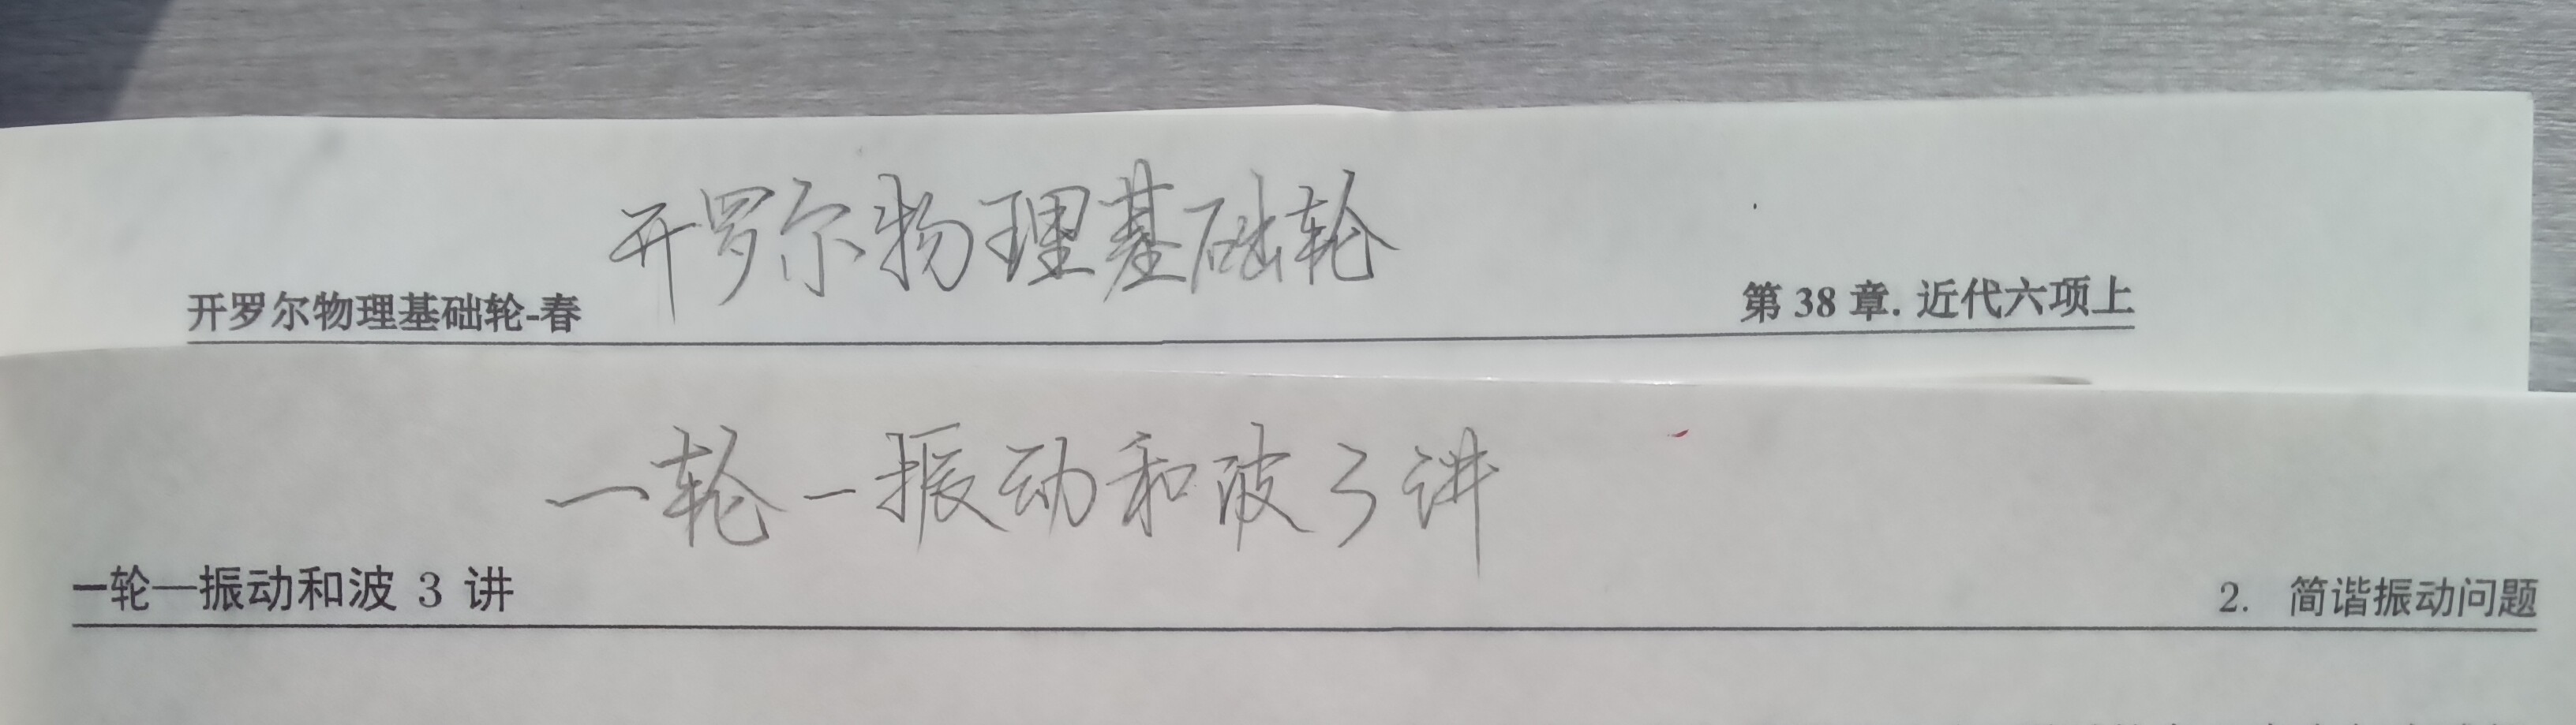 开罗尔物理基础轮
开罗尔物理基础轮-春 第 38 章. 近代六项上
一轮一振动和波3讲
一轮—振动和波 3 讲 2. 简谐振动问题